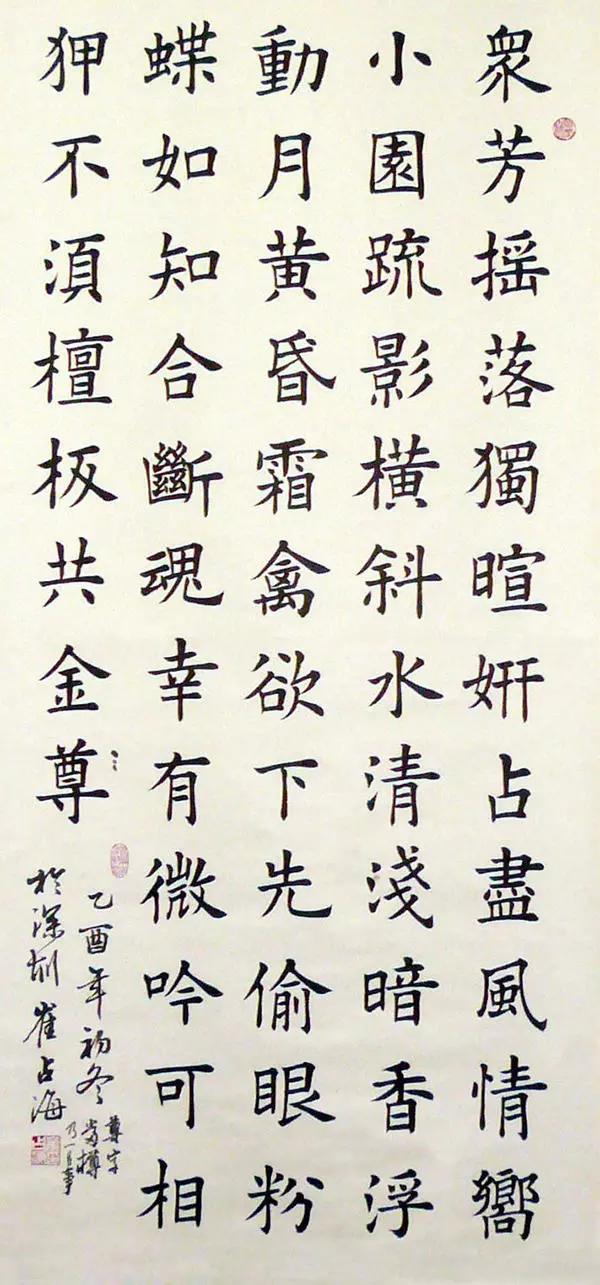 衆芳摇落獨暄妍占盡風情嚮
小園疏影橫斜水清淺暗香浮
動月黄昏霜禽欲下先偷眼粉
蝶如知合斷魂幸有微吟可相
狎不湏檀板共金尊
乙酉年初冬
於深圳崔占海
尊字
當樽